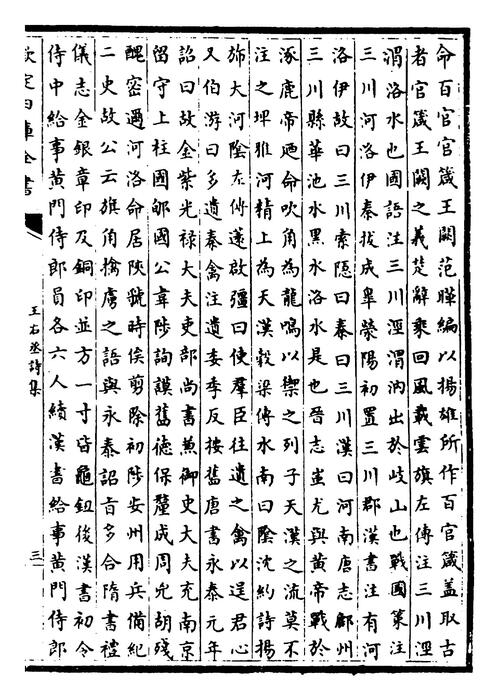 命百官官箴王闕范曄編以揚雄所作百官箴蓋取古
者官箴王闕之義楚辭乘回風載雲旗左傳注三川涇
渭洛水也國語注三川涇渭汭出於岐山也戰國策注
三川河洛伊秦拔成臯滎陽初置三川郡漢書注有河
洛伊故曰三川索隱曰秦曰三川漢曰河南唐志鄜州
三川縣華池水黒水洛水是也晉志蚩尤與黄帝戰於
涿鹿帝廼命吹角為龍鳴以禦之列子天漢之流莫不
注之埤雅河精上為天漢穀梁傳水南曰陰沈約詩揚
斾大河陰左傳薳啟彊曰使羣臣往遺之禽以逞君心
又伯游曰多遺秦禽注遺委季反按舊唐書永泰元年
詔曰故金紫光禄大夫吏部尚書兼御史大夫充南京
留守上柱國郇國公韋陟詢謨舊德保釐成周兇胡殘
醜密邇河洛命居陝虢時俟剪除初陟安州用兵備紀
二史故公云旗角擒虜之語與永泰詔旨多合隋書禮
儀志金銀章印及銅印並方一寸皆龜鈕後漢書初令
侍中給事黄門侍郎員各六人續漢書給事黄門侍郎
欽定四庫全書
王右丞詩集
三